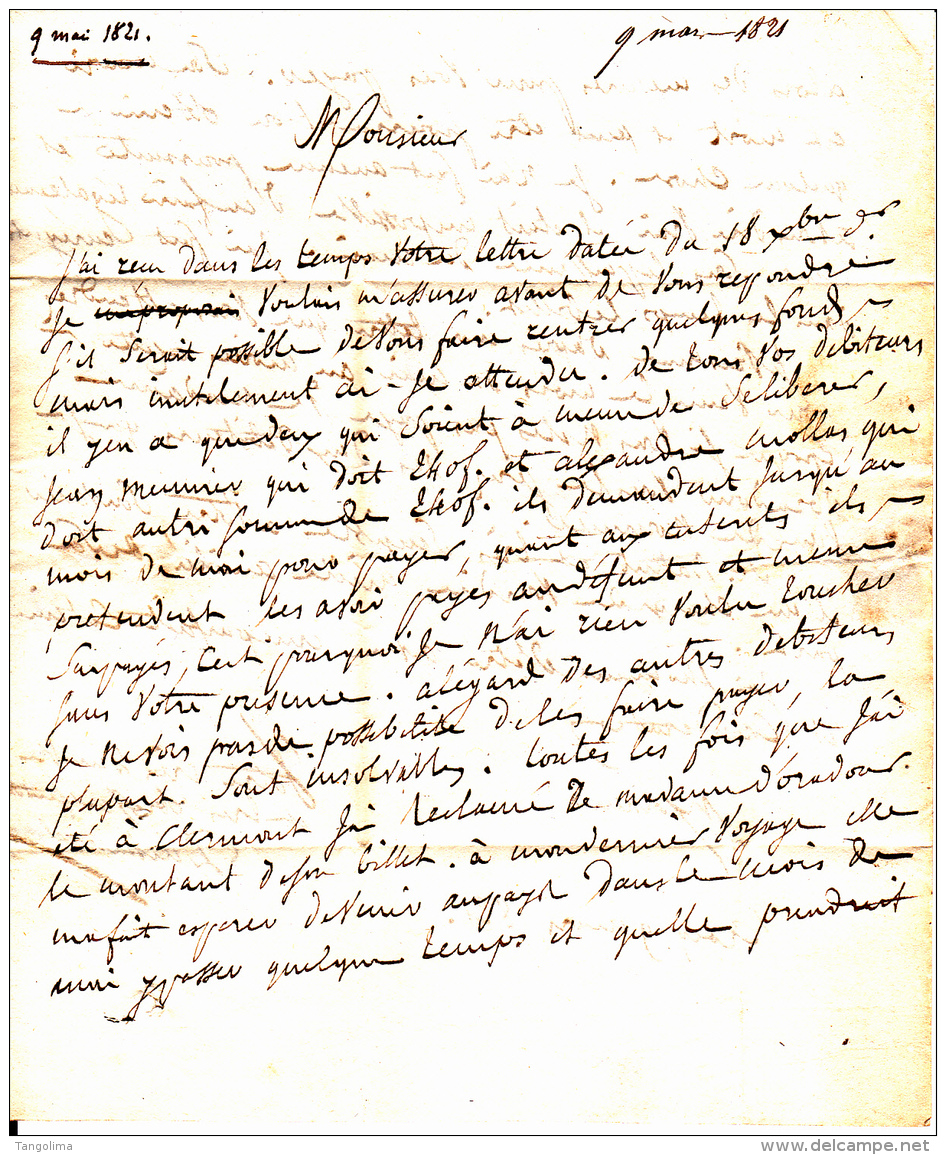 9 mai 1821.
9 mars 1821
Monsieur
J'ai reçu dans les temps votre lettre datée du 18 xbre dr
Je me proposais voulais m'assurer avant de vous repondre
s'il serait possible de vous faire rentrer quelques fonds
mais inutilement ai-je attendu. De tous vos debiteurs
il y en a que deux qui soient à meme de se liberer,
Jean meunier qui doit 240f. et alexandre mollas qui
doit autre somme de 240f. ils demandent jusqu'au
mois de mai pour payer, quant aux interets ils
pretendent les avoir payés au défunt et meme
surpayés, c'est pourquoi je n'ai rien voulu toucher
sans votre presence. a légard des autres debiteurs
je ne vois pas de possibilité de les faire payer, la
plupart sont insolvables. toutes les fois que j'ai
été à Clermont j'ai reclamé de madame d'oradour
le montant de son billet. à mon dernier voyage elle
m'a fait esperer de venir au pays dans le mois de
mai y passer quelque temps et quelle prendroit
Tangolima
www.delcampe.net